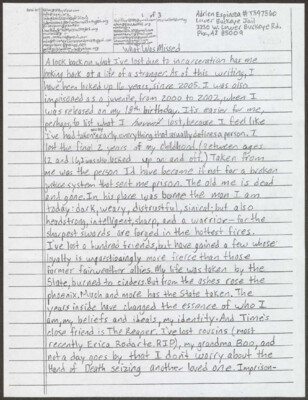 1 of 3
Adrian Espinoza #T397560
Lower Buckeye Jail
3250 W. Lower Buckeye Rd.
Phx, AZ 85009
What Was Missed
A look back on what I've lost due to incarceration has me
looking back at a life of a stranger. As of this writing, I
have been locked up 16 years, since 2005. I was also
imprisoned as a juvenile, from 2000 to 2002, when I
was released on my 18th birthday. It's easier for me,
perhaps, to list what I lost, because I feel like
I've had taken nearly everything that usually defines a person. I
lost the final 2 years of my childhood (between ages
12 and 16, I was also locked up on and off.) Taken from
me was the person I'd have become if not for a broken
system that sent me prison. The old me is dead
and gone. In his place was borne the man I am
today: dark, weary, distrustful, sinical; but also
headstrong, intelligent, sharp, and a warrior - for the
sharpest swords are forged in the hottest fires.
I've lost a hundred friends, but have gained a few whose
loyalty is unquestioningly more fierce than those
former fairweather allies. My life was taken by the
State, burned to cinders. But from the ashes rose the
phoenix. Much and more has the State taken. The
years inside have changed the essence of who I
am, my beliefs and ideals, my identity. And Time's
close friend is The Reaper. I've lost cousins (most
recently Erica Rodarte R.I.P), my grandma Boo, and
not a day goes by that I don't worry about the
Hand of Death seizing another loved one. Imprison-